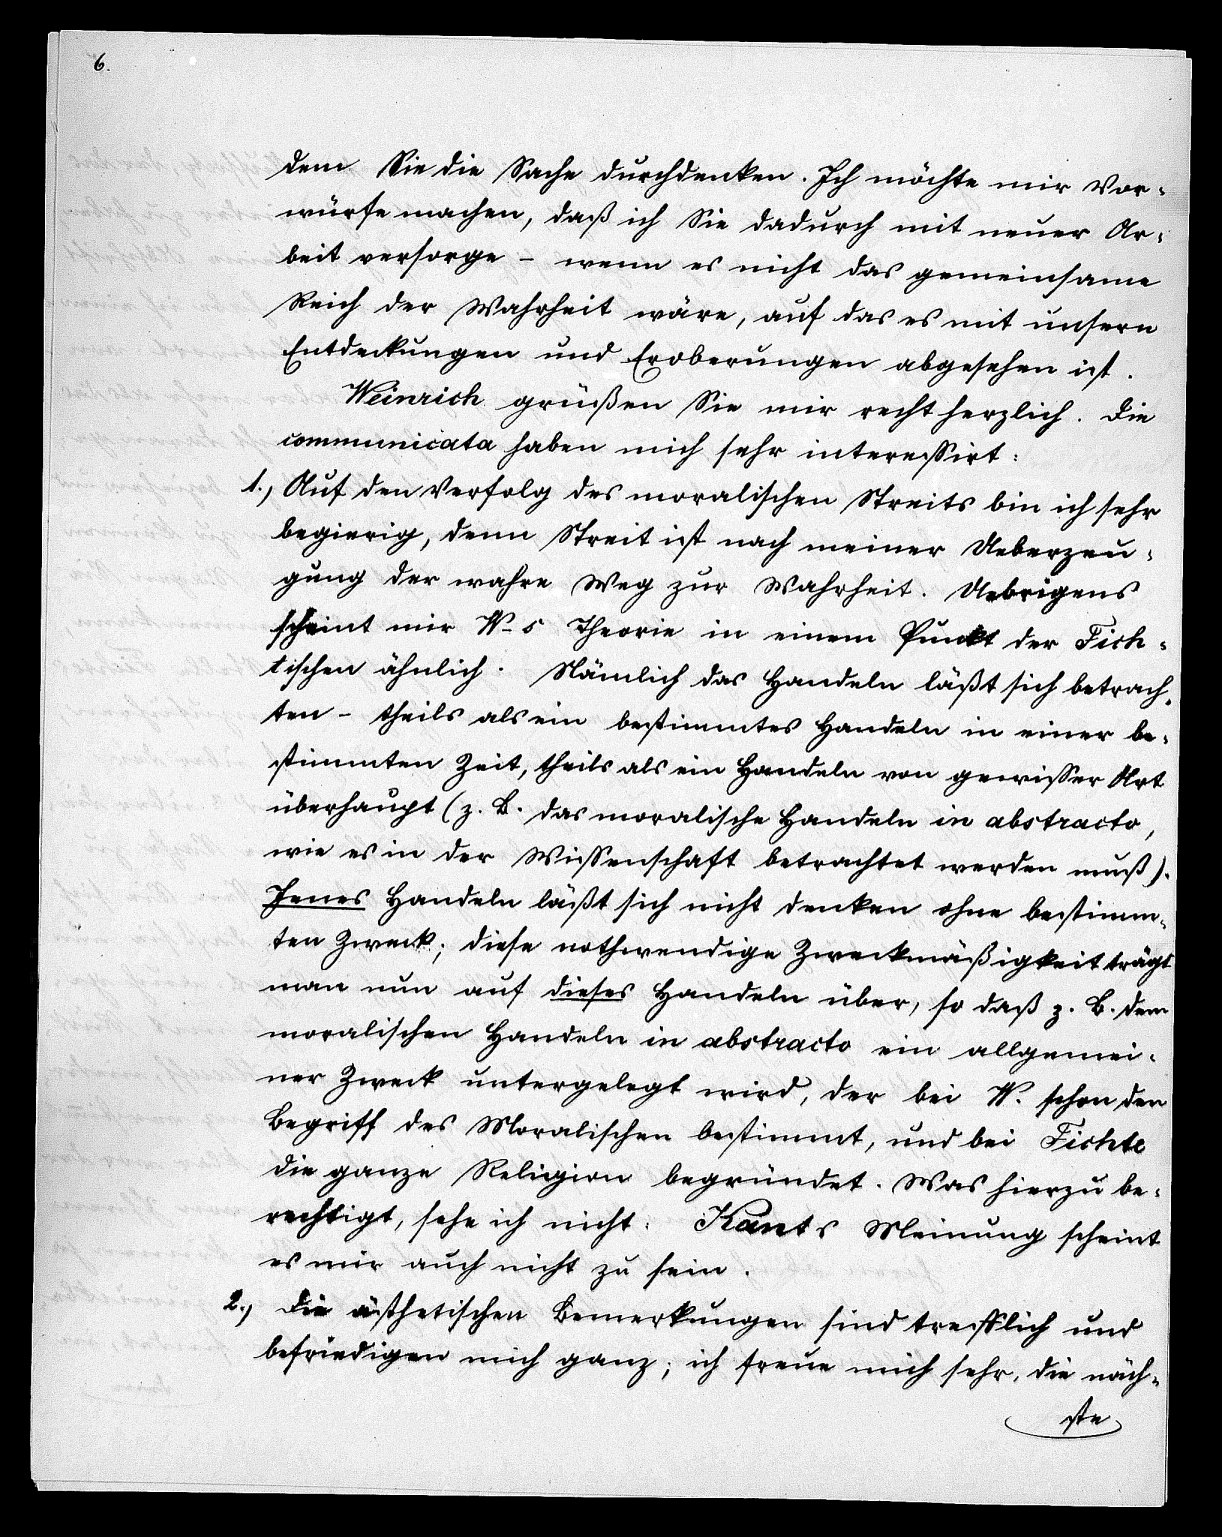 6.
dem Sie die Sache durchdenken. Ich möchte mir Vor-
würfe machen, daß ich Sie dadurch mit neuer Ar-
beit versorge – wenn es nicht das gemeinsame
Reich der Wahrheit wäre, auf das es mit unsern
Entdeckungen und Eroberungen abgesehen ist.
Weinrich grüßen Sie mir recht herzlich. Die
communicata haben mich sehr interessirt:
1., Auf den Verfolg des moralischen Streits bin ich sehr
begierig, denn Streit ist nach meiner Ueberzeu-
gung der wahre Weg zur Wahrheit. Uebrigens
scheint mir W-s Theorie in einem Punkt der Fich-
tischen ähnlich. Nämlich das Handeln läßt sich betrach-
ten – theils als ein bestimmtes Handeln in einer be-
stimmten Zeit, theils als ein Handeln von gewisser Art
überhaupt (z. B. das moralische Handeln in abstracto,
wie es in der Wissenschaft betrachtet werden muß).
Jenes Handeln läßt sich nicht denken ohne bestimm-
ten Zweck; diese nothwendige Zweckmäßigkeit trägt
man nun auf dieses Handeln über, so daß z. B. dem
moralischen Handeln in abstracto ein allgemei-
ner Zweck untergelegt wird, der bei W. schon den
Begriff des Moralischen bestimmt, und bei Fichte
die ganze Religion begründet. Was hierzu be-
rechtigt, sehe ich nicht. Kants Meinung scheint
es mir auch nicht zu sein.
2., Die ästhetischen Bemerkungen sind trefflich und
befriedigen mich ganz; ich freue mich sehr, die näch-
ste